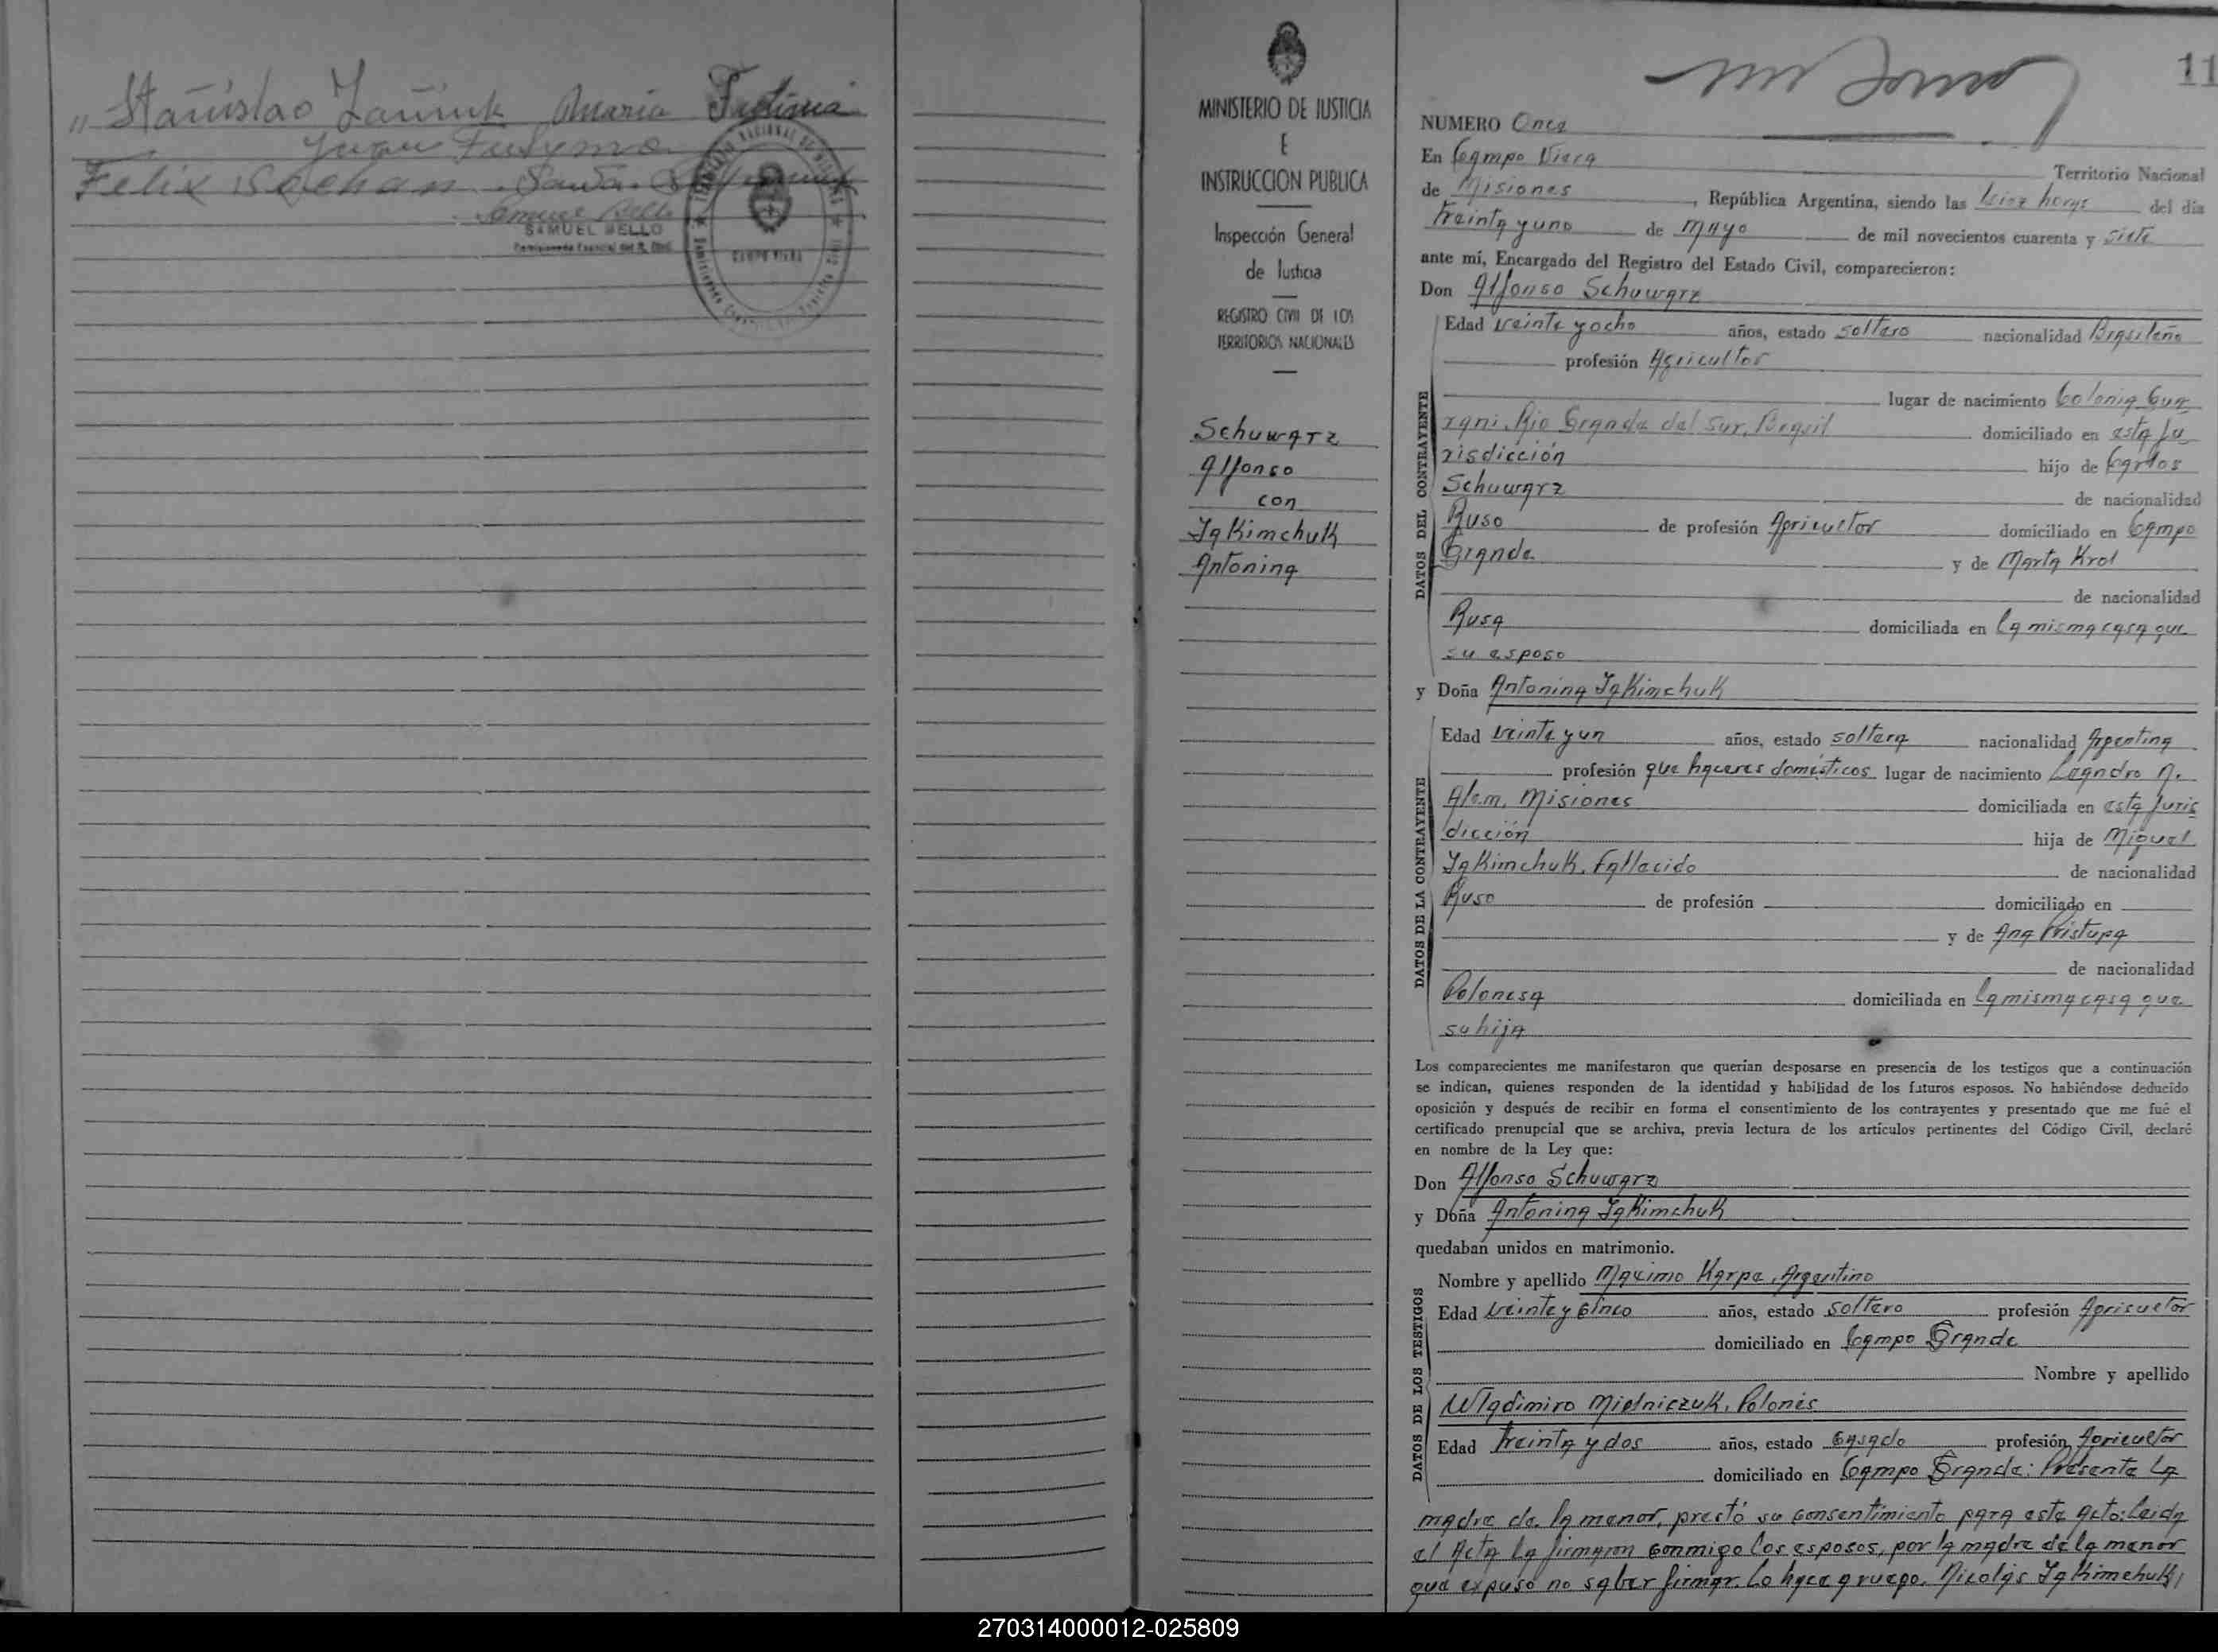 " Stanislao Zaniuk Maria Futima
Juan Futyma
Felix Sochan.
Samuel Bello
SAMUEL BELLO
CAMPO VIERA
MINISTERIO DE JUSTICIA
E
INSTRUCCION PUBLICA
Inspección General
de Justicia
REGISTRO CIVIL DE LOS
TERRITORIOS NACIONALES
Schuwarz
Alfonso
con
Iakimchuk
Antonina
11
NUMERO Once
En Campo Viera Territorio Nacional
de Misiones, República Argentina, siendo las diez horas del dia
treinta y uno de Mayo de mil novecientos cuarenta y siete
ante mí, Encargado del Registro del Estado Civil, comparecieron:
Don Alfonso Schuwarz
Edad veinte y ocho años, estado soltero nacionalidad Brasileño
profesión Agricultor
lugar de nacimiento Colonia Gua
rani, Rio Grande del Sur, Brasil domiciliado en esta Ju
risdicción hijo de Carlos
Schuwarz de nacionalidad
Ruso de profesión Agricultor domiciliado en Campo
Grande y de Marta Krol
de nacionalidad
Rusa domiciliada en la misma casa que
su esposo
y Doña Antonina Iakimchuk
Edad veinte y un años, estado soltera nacionalidad Argentina
profesión que haceres domésticos lugar de nacimiento Leandro N.
Alem, Misiones domiciliada en esta Juris
dicción hija de Miguel
Iakimchuk, Fallecido de nacionalidad
Ruso de profesión domiciliado en
y de Ana Pristupa
de nacionalidad
Polonesa domiciliada en la misma casa que
su hija
Los comparecientes me manifestaron que querían desposarse en presencia de los testigos que a continuación
se indican, quienes responden de la identidad y habilidad de los futuros esposos. No habiéndose deducido
oposición y después de recibir en forma el consentimiento de los contrayentes y presentado que me fué el
certificado prenupcial que se archiva, previa lectura de los artículos pertinentes del Código Civil, declaré
en nombre de la Ley que:
Don Alfonso Schuwarz
y Doña Antonina Iakimchuk
quedaban unidos en matrimonio.
Nombre y apellido Maximo Karpe, Argentino
Edad veinte y cinco años, estado soltero profesión Agricultor
domiciliado en Campo Grande
Nombre y apellido
Wladimiro Mielniczuk, Polonés
Edad treinta y dos años, estado casado profesión Agricultor
domiciliado en Campo Grande: Presente la
madre de la menor, prestó su consentimiento para este acto: Leida
el Acta la firmaron conmigo los esposos, por la madre de la menor
que expuso no saber firmar. lo hace a ruego, Nicolás Iakimchuk,
DATOS DEL CONTRAYENTE
DATOS DE LA CONTRAYENTE
DATOS DE LOS TESTIGOS
270314000012-025809